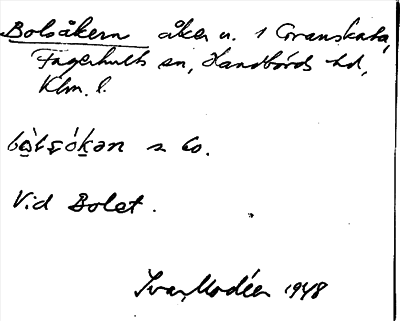 Bolsåkern åker n. i Granskata,
Fagerhults sn, Handbörds hd,
Klm. l.
s. o.
Vid Bolet.
Ivar Modéer 1948